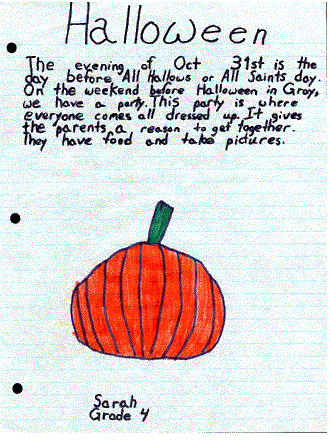 Halloween
The evening of Oct 31st is the
day before All Hallows or All Saints day.
On the weekend before Halloween in Gray,
we have a party. This party is where
everyone comes all dressed up. It gives
the parents a reason to get together.
They have food and take pictures.
Sarah
Grade 4